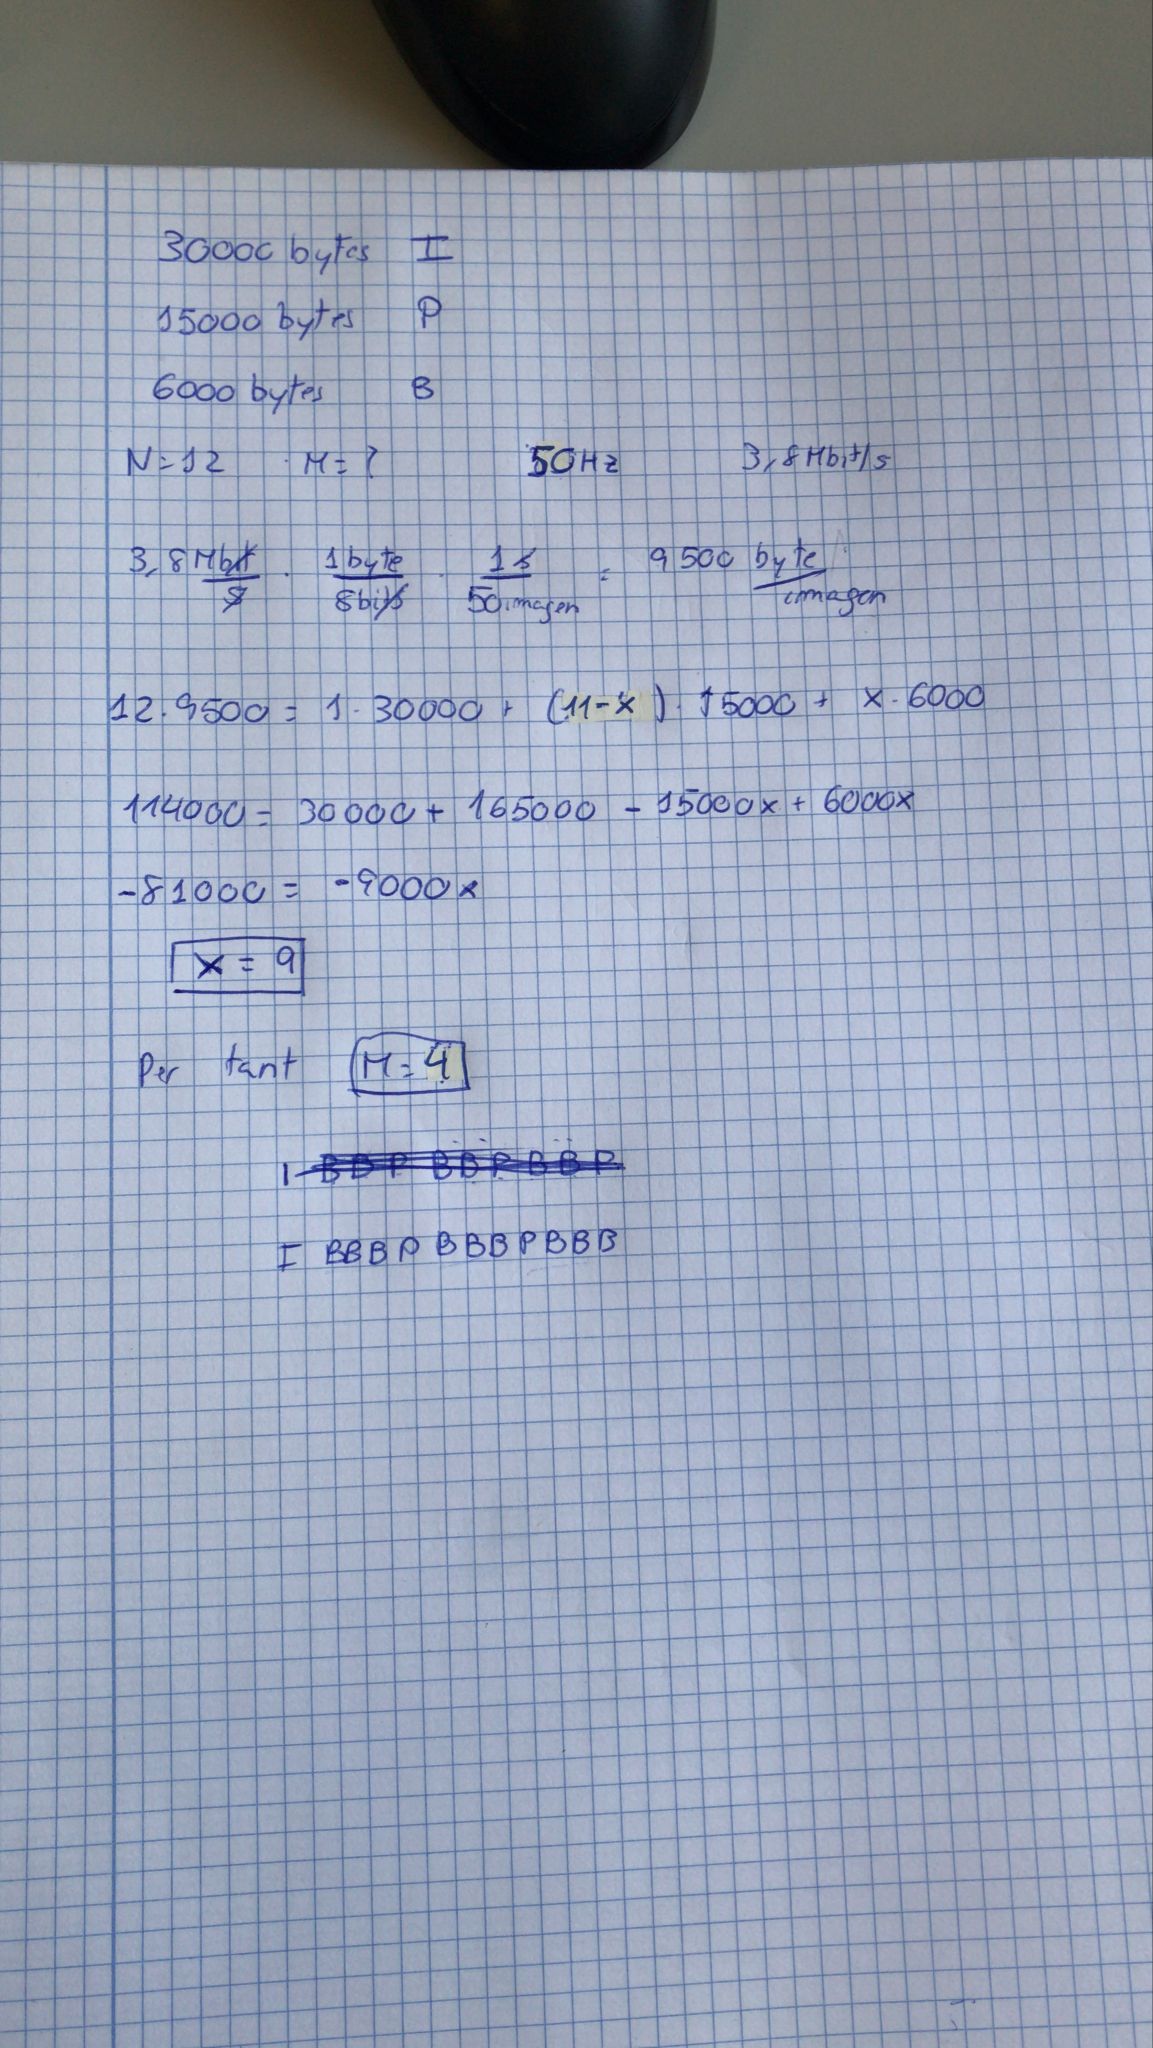 30000 bytes I
15000 bytes P
6000 bytes B
N=12 M=? 50Hz 3,8Mbit/s
3,8Mbit/s · 1byte/8bits · 1s/50imagen = 9500 byte/imagen
12.9500 = 1·30000 + (11-x)·15000 + x·6000
114000 = 30000 + 165000 - 15000x + 6000x
-81000 = -9000x
x = 9
Per tant M=4
I BBP BBP BBP
I BBBP BBBPBBB